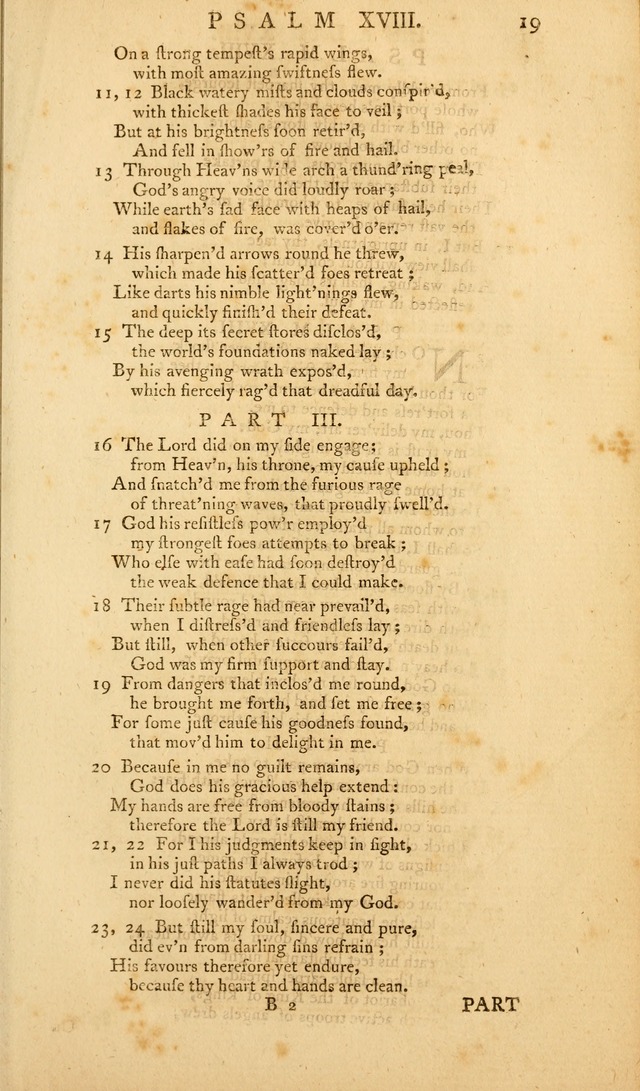 PSALM XVIII. 19
On a ſtrong tempeſt's rapid wings,
with moſt amazing ſwiftneſs flew.
11, 12 Black watery miſts and clouds conſpir'd,
with thickeſt ſhades his face to veil;
But at his brightneſs ſoon retir'd,
And fell in ſhow'rs of fire and hail.
13 Through Heav'ns wide arch a thund'ring peal,
God's angry voice did loudly roar;
While earth's ſad face with heaps of hail,
and flakes of fire, was cover'd o'er.
14 His ſharpen'd arrows round he threw,
which made his ſcatter'd foes retreat;
Like darts his nimble light'nings flew,
and quickly finiſh'd their defeat.
15 The deep its ſecret ſtores diſclos'd,
the world's foundations naked lay;
By his avenging wrath expos'd,
which fiercely rag'd that dreadful day.
PART III.
16 The Lord did on my ſide engage;
from Heav'n, his throne, my cauſe upheld;
And ſnatch'd me from the furious rage
of threat'ning waves, that proudly ſwell'd.
17 God his reſiſtleſs pow'r employ'd
my ſtrongeſt foes attempts to break;
Who elſe with eaſe had ſoon deſtroy'd
the weak defence that I could make.
18 Their ſubtle rage had near prevail'd,
when I diſtreſs'd and friendleſs lay;
But ſtill, when other ſuccours fail'd,
God was my firm ſupport and ſtay.
19 From dangers that inclos'd me round,
he brought me forth, and ſet me free;
For ſome juſt cauſe his goodneſs found,
that mov'd him to delight in me.
20 Becauſe in me no guilt remains,
God does his gracious help extend:
My hands are free from bloody ſtains;
therefore the Lord is ſtill my friend.
21, 22 For I his judgments keep in ſight,
in his juſt paths I always trod;
I never did his ſtatutes ſlight,
nor looſely wander'd from my God.
23, 24 But ſtill my ſoul, ſincere and pure,
did ev'n from darling ſins refrain;
His favours therefore yet endure,
becauſe thy heart and hands are clean.
B 2 PART